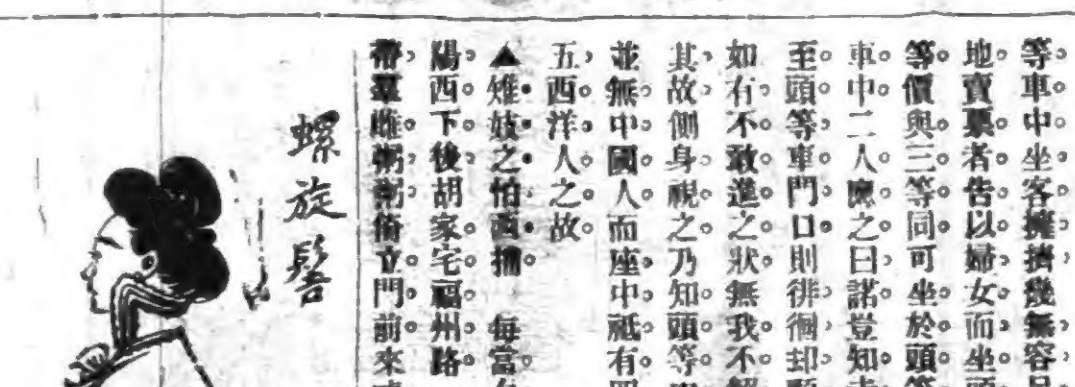 等車中坐客擁擠幾無容
地賣票者告以婦女而坐頭
等價與三等同可坐於頭等
車中二人應之曰諾豈知走
至頭等車門口則徘徊却顧
如有不敢進之狀無我不解
其故側身視之乃知頭等
並無中國人而座中祗有四
五西洋人之故
▲雉妓之怕西捕 每當夕
陽西下後胡家宅福州路
帶羣雌粥粥倚立門前來
螺旋髻